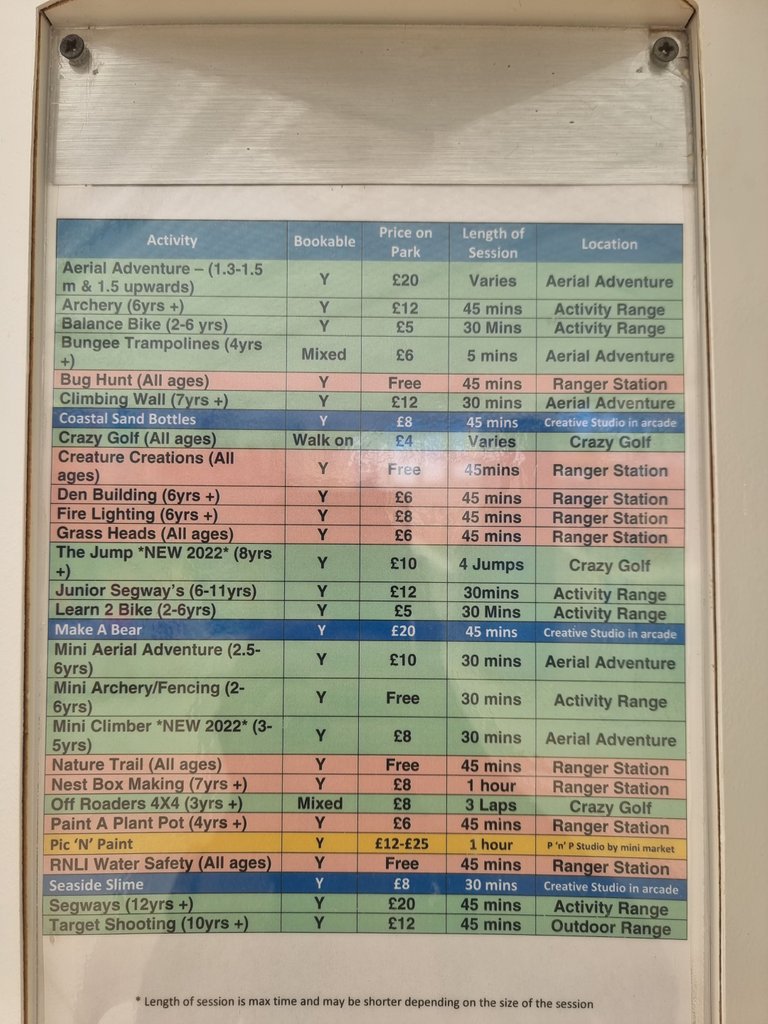 Activity Bookable Price on Park Length of Session Location
Aerial Adventure – (1.3-1.5 m & 1.5 upwards) Y £20 Varies Aerial Adventure
Archery (6yrs +) Y £12 45 mins Activity Range
Balance Bike (2-6 yrs) Y £5 30 Mins Activity Range
Bungee Trampolines (4yrs +) Mixed £6 5 mins Aerial Adventure
Bug Hunt (All ages) Y Free 45 mins Ranger Station
Climbing Wall (7yrs +) Y £12 30 mins Aerial Adventure
Coastal Sand Bottles Y £8 45 mins Creative Studio in arcade
Crazy Golf (All ages) Walk on £4 Varies Crazy Golf
Creature Creations (All ages) Y Free 45mins Ranger Station
Den Building (6yrs +) Y £6 45 mins Ranger Station
Fire Lighting (6yrs +) Y £8 45 mins Ranger Station
Grass Heads (All ages) Y £6 45 mins Ranger Station
The Jump *NEW 2022* (8yrs +) Y £10 4 Jumps Crazy Golf
Junior Segway's (6-11yrs) Y £12 30mins Activity Range
Learn 2 Bike (2-6yrs) Y £5 30 Mins Activity Range
Make A Bear Y £20 45 mins Creative Studio in arcade
Mini Aerial Adventure (2.5-6yrs) Y £10 30 mins Aerial Adventure
Mini Archery/Fencing (2-6yrs) Y Free 30 mins Activity Range
Mini Climber *NEW 2022* (3-5yrs) Y £8 30 mins Aerial Adventure
Nature Trail (All ages) Y Free 45 mins Ranger Station
Nest Box Making (7yrs +) Y £8 1 hour Ranger Station
Off Roaders 4X4 (3yrs +) Mixed £8 3 Laps Crazy Golf
Paint A Plant Pot (4yrs +) Y £6 45 mins Ranger Station
Pic 'N' Paint Y £12-£25 1 hour P 'n' P Studio by mini market
RNLI Water Safety (All ages) Y Free 45 mins Ranger Station
Seaside Slime Y £8 30 mins Creative Studio in arcade
Segways (12yrs +) Y £20 45 mins Activity Range
Target Shooting (10yrs +) Y £12 45 mins Outdoor Range
* Length of session is max time and may be shorter depending on the size of the session